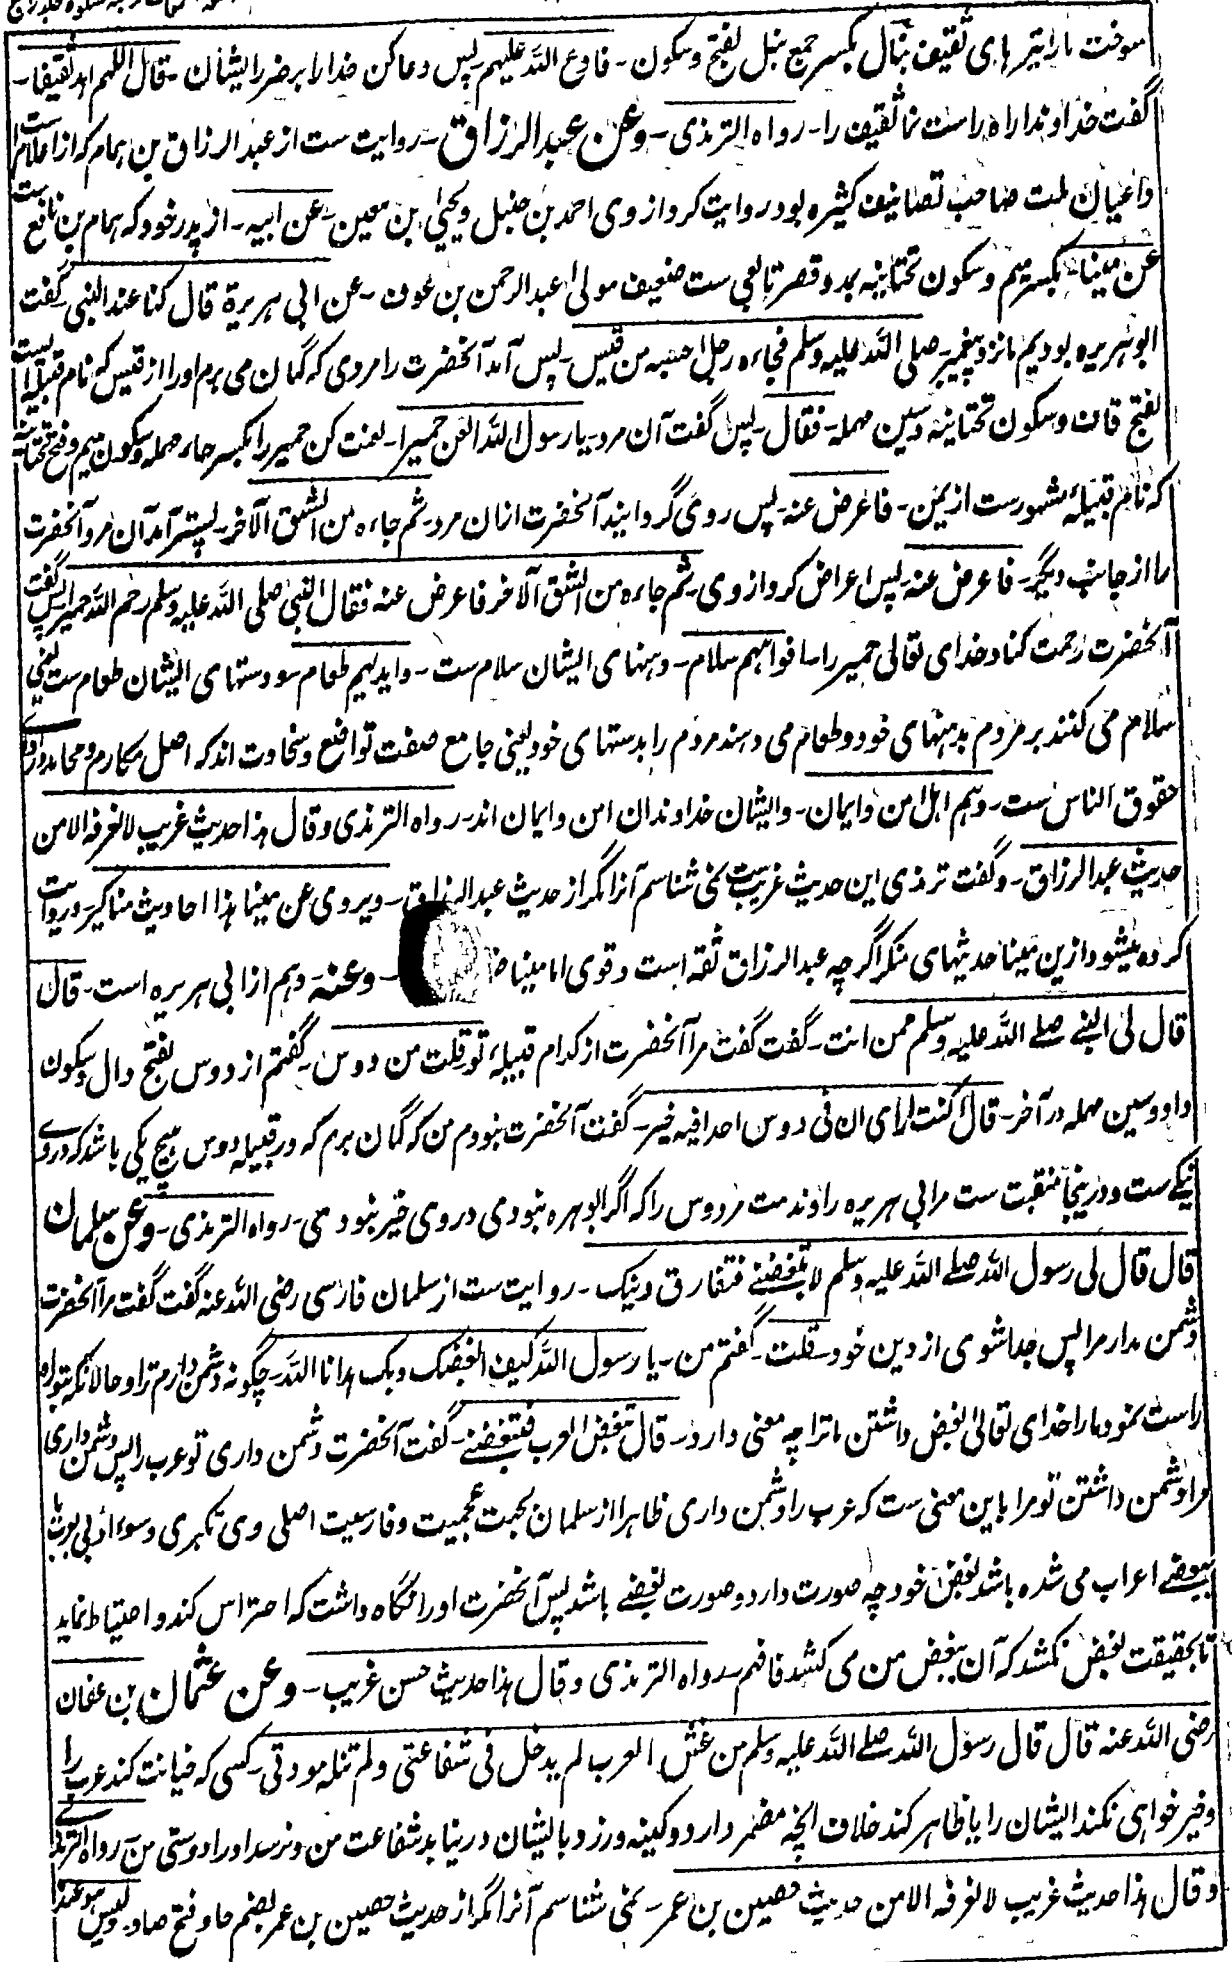 سوخت ما را تیرهای ثقیف نبال بکسر جمع نبل بفتح وسکون ـ فادع الله علیهم ـ پس دعا کن خدا را بر ضرر ایشان ـ قال اللهم اهد ثقیفا ـ
گفت خداوندا راه راست نما ثقیف را ـ رواه الترمذی ـ وعن عبد الرزاق ـ روایت ست از عبد الرزاق بن همام که از اعلام ست
واعیان امت صاحب تصانیف کثیره بود روایت کرد از وی احمد بن حنبل ویحییٰ بن معین ـ عن ابیه ـ از پدر خود که همام بن نافع ست
عن میناء بکسر میم وسکون تحتانیه بمد وقصر تابعی ست ضعیف مولیٰ عبد الرحمن بن عوف ـ عن ابی هریرة قال کنا عند النبی گفت
ابو هریره بودیم ما نزد پیغمبر صلی الله علیه وسلم فجاءه رجل احسبه من قیس ـ پس آمد آنحضرت را مردی که گمان می برم او را از قیس که نام قبیله ایست
بفتح قاف وسکون تحتانیه وسین مهمله ـ فقال ـ پس گفت آن مرد ـ یا رسول الله العن حمیرا ـ لعنت کن حمیر را بکسر حاء مهمله وسکون میم وفتح تحتانیه
که نام قبیلهٔ مشهورست از یمن ـ فاعرض عنه ـ پس روی گردانید آنحضرت ازان مرد ـ ثم جاءه من الشق الآخر ـ پستر آمد آن مرد آنحضرت
را از جانب دیگر ـ فاعرض عنه ـ پس اعراض کرد از وی ـ ثم جاءه من الشق الآخر فاعرض عنه فقال النبی صلی الله علیه وسلم رحم الله حمیرا پس گفت
آنحضرت رحمت کناد خدای تعالی حمیر را ـ افواههم سلام ـ دهنهای ایشان سلام ست ـ وایدیهم طعام ـ ودستهای ایشان طعام ست یعنی
سلام می کنند بر مردم بدهنهای خود وطعام می دهند مردم را بدستهای خود یعنی جامع صفت تواضع وسخاوت اند که اصل مکارم ومحامد وادای
حقوق الناس ست ـ وهم اهل امن وایمان ـ وایشان خداوندان امن وایمان اند ـ رواه الترمذی وقال هذا حدیث غریب لا نعرفه الا من
حدیث عبد الرزاق ـ وگفت ترمذی این حدیث غریب ست نمی شناسم آنرا مگر از حدیث عبد الرزاق ـ ویروی عن مینا هذا احادیث مناکیر ـ وروایت
کرده میشود ازین مینا حدیثهای منکر اگرچه عبد الرزاق ثقه است وقوی اما مینا ـ وعنه ـ وهم از ابی هریره است ـ قال
قال لی النبی صلے الله علیه وسلم ممن انت ـ گفت گفت مرا آنحضرت از کدام قبیلهٔ تو قلت من دوس ـ گفتم از دوس بفتح دال وسکون
واو وسین مهمله در آخر ـ قال ما کنت اری ان فی دوس احدا فیه خیر ـ گفت آنحضرت نبودم من که گمان برم که در قبیله دوس هیچ یکی باشد که در وے
نیکے ست ودرینجا منقبت ست مر ابی هریره را ومذمت مر دوس را که اگر ابو هره نبودی در وی خیر نبود می ـ رواه الترمذی ـ وعن سلمان
قال قال لی رسول الله صلے الله علیه وسلم لا تبغضنے فتفارق دینک ـ روایت ست از سلمان فارسی رضی الله عنه گفت گفت مرا آنحضرت
دشمن مدار مرا پس جدا شوی از دین خود ـ قلت ـ گفتم من ـ یا رسول الله کیف ابغضک وبک هدانا الله ـ چگونه دشمن دارم ترا وحالانکه بتو راه
راست نمود ما را خدای تعالیٰ بغض داشتن ما ترا چه معنی دارد ـ قال تبغض العرب فتبغضنے ـ گفت آنحضرت دشمن داری تو عرب را پس دشمن داری
مرا دشمن داشتن تو مرا باین معنی ست که عرب را دشمن داری ظاهرا از سلمان بجهت عجمیت وفارسیت اصلی وی تکبری وسوء ادبی بعرب یا
ببعضے اعراب می شده باشد بغض خود چه صورت دارد وصورت بغضے باشد پس آنحضرت او را نگاه داشت که احتراس کند واحتیاط نماید
تا بحقیقت بغض نکشد که آن ببغض من می کشد فافهم ـ رواه الترمذی وقال هذا حدیث حسن غریب ـ وعن عثمان بن عفان
رضی الله عنه قال قال رسول الله صلے الله علیه وسلم من غش العرب لم یدخل فی شفاعتی ولم تنله مودتی ـ کسی که خیانت کند عرب را
وخیرخواهی نکند ایشان را یا ظاهر کند خلاف آنچه مضمر دارد وکینه ورزد بایشان در نیابد شفاعت من ونرسد او را دوستی من رواه الترمذی
وقال هذا حدیث غریب لا نعرفه الا من حدیث حصین بن عمر ـ نمی شناسم آنرا مگر از حدیث حصین بن عمر بضم حا وفتح صاد ـ ولیس هو عند